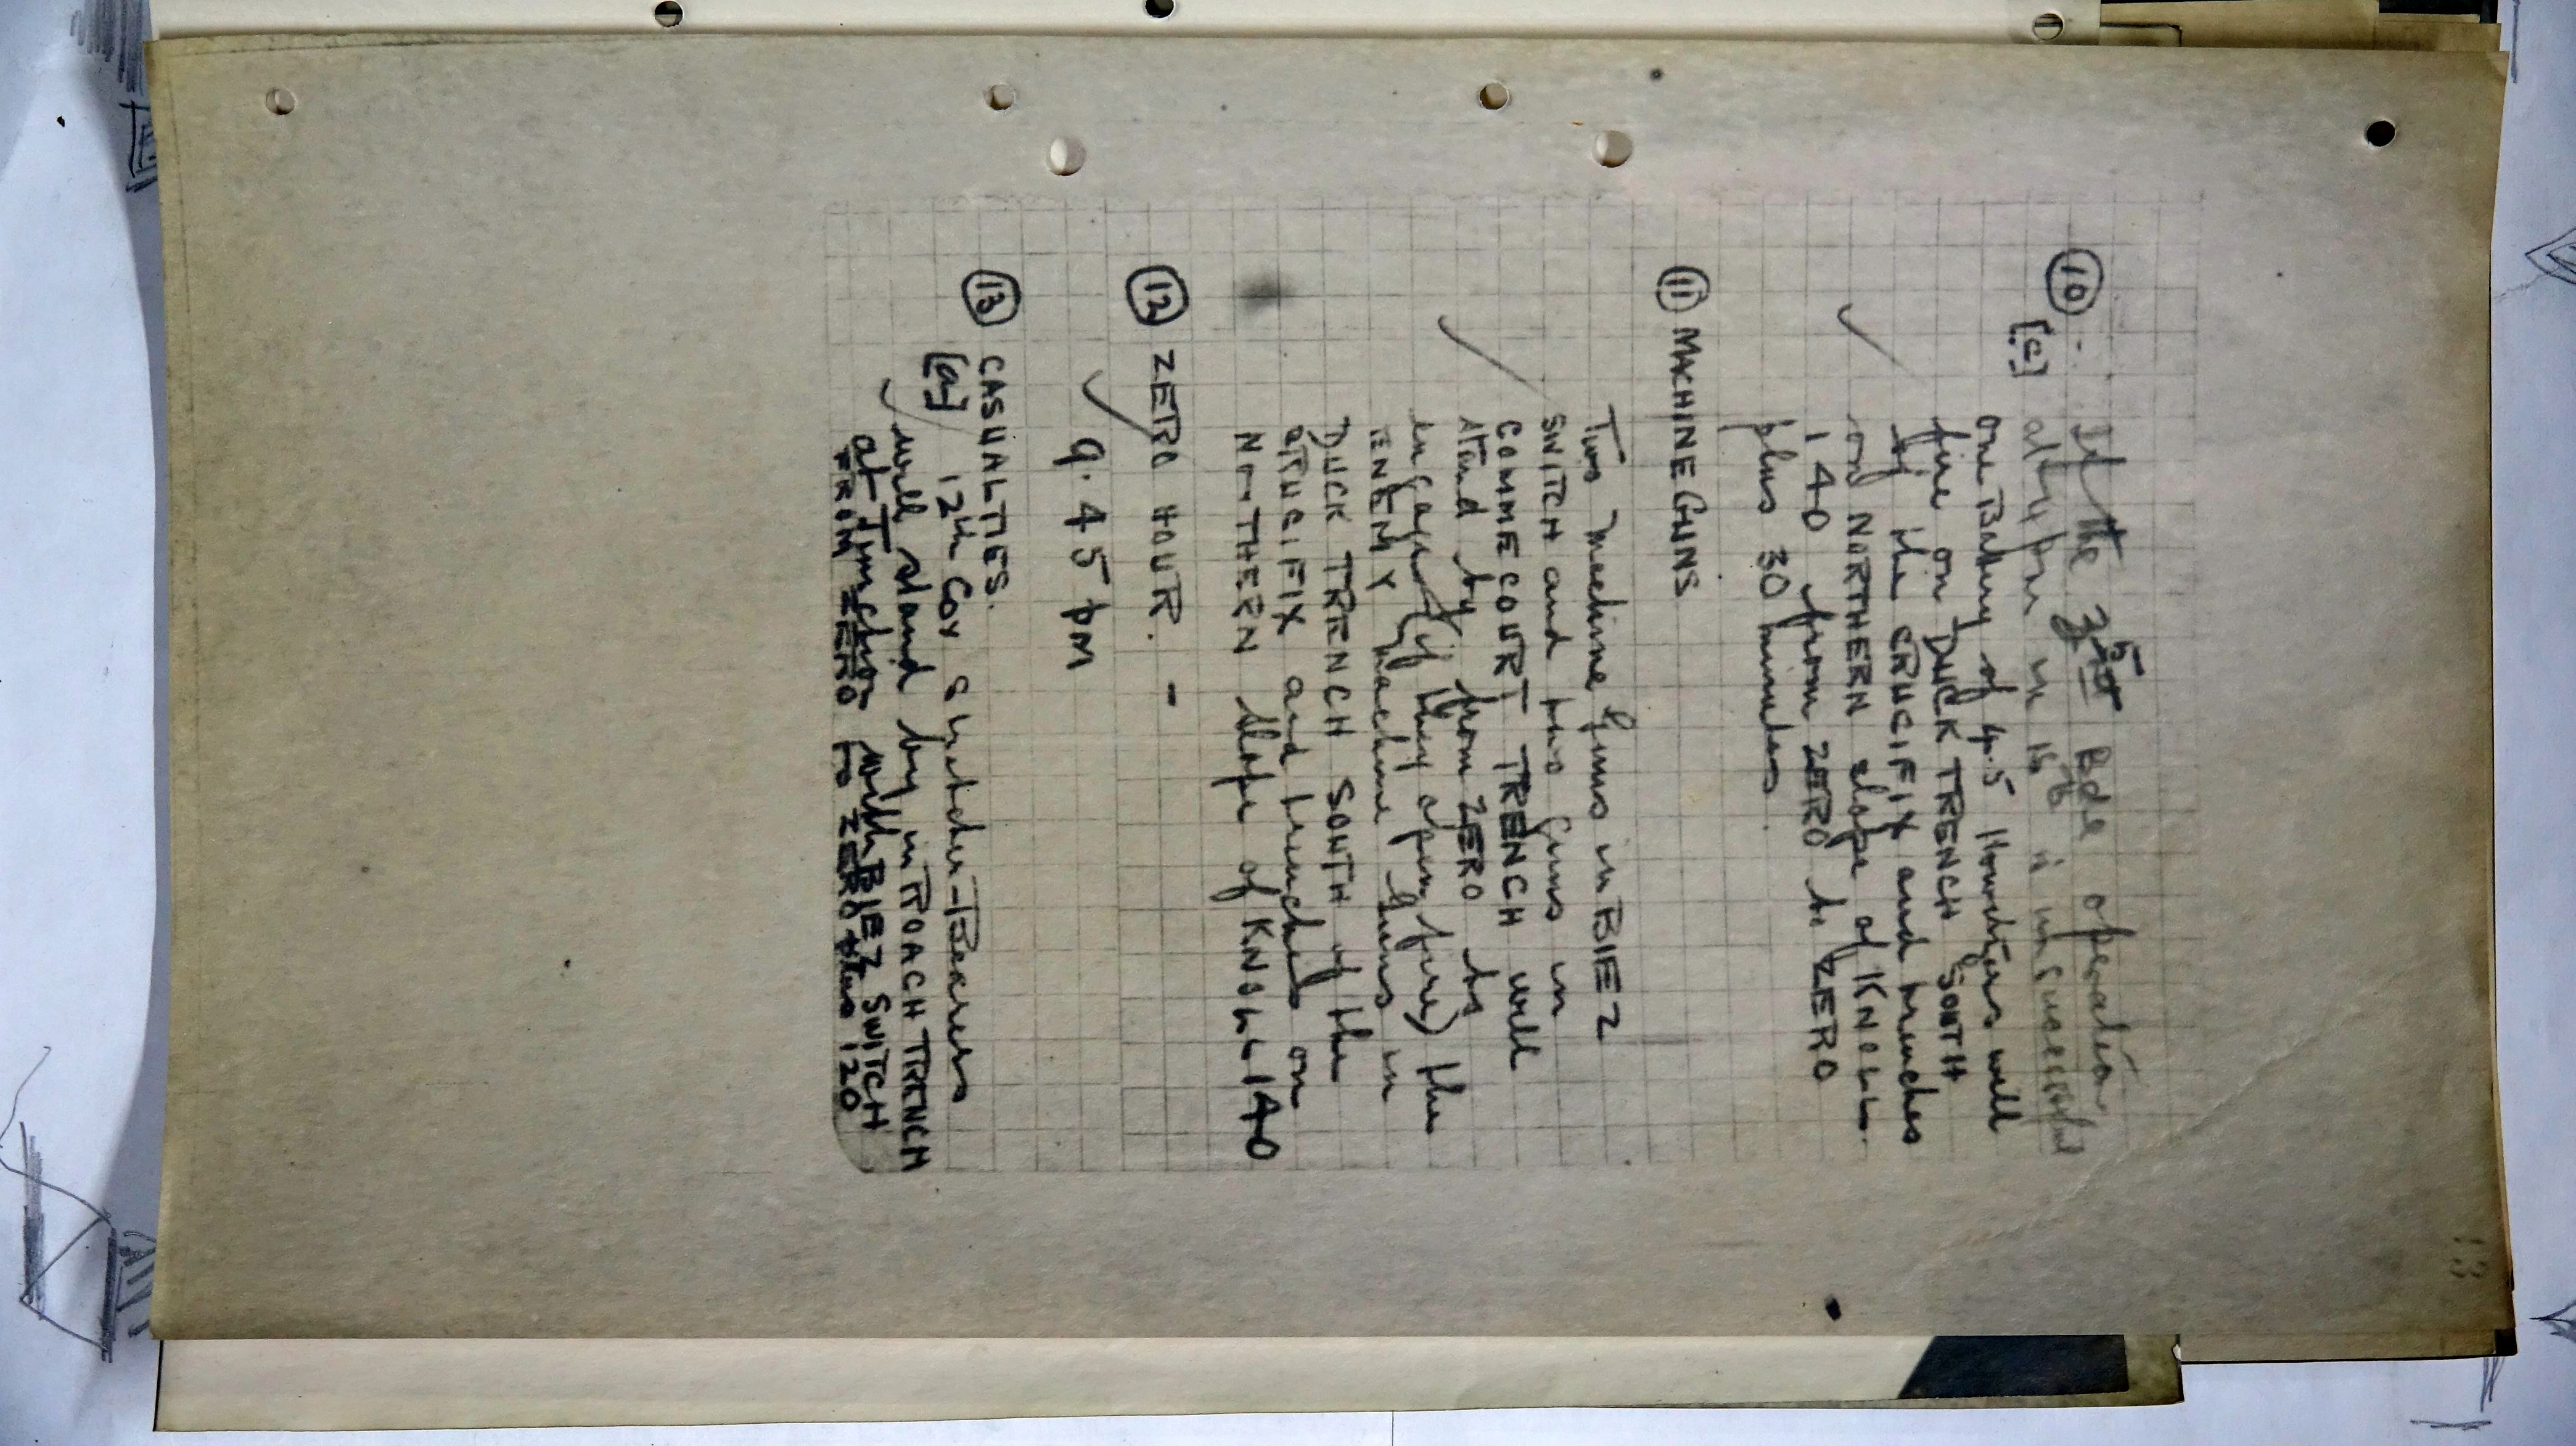 ⑩ If the 5th Bde operation
[c] at 4 pm on 16th is unsuccessful
one Battery of 4.5 Howitzers will
fire on DUCK TRENCH SOUTH
of the CRUCIFIX and trenches
on NORTHERN slope of KNOLL
140 from ZERO to ZERO
plus 30 minutes.
⑪ MACHINE GUNS
Two machine guns in BIEZ
SWITCH and two guns in
COMMECOURT TRENCH will
stand by from ZERO to
engage (if they open fire) the
ENEMY machine guns in
DUCK TRENCH SOUTH of the
CRUCIFIX and trenches on
NORTHERN slope of KNOLL 140
⑫ ZERO HOUR. -
9.45 pm
⑬ CASUALTIES.
[a] 12th Coy Stretcher-Bearers
will stand by in ROACH TRENCH
at Junction with BIEZ SWITCH
FROM ZERO to ZERO plus 120
13